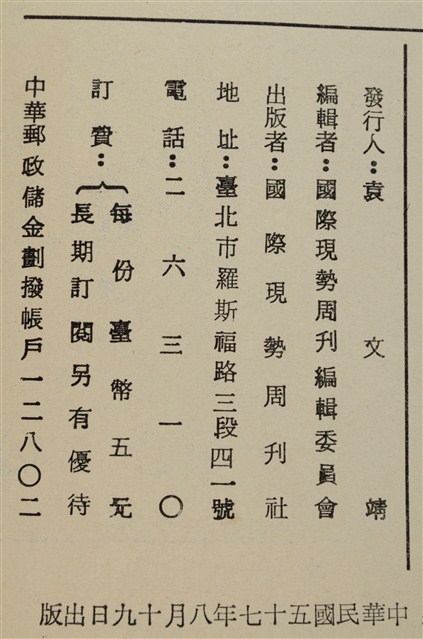 發行人：袁文靖
編輯者：國際現勢周刊編輯委員會
出版者：國際現勢周刊社
地址：臺北市羅斯福路三段四一號
電話：二六三一〇
訂費：每份臺幣五元
長期訂閱另有優待
中華郵政儲金劃撥帳戶一二八〇二
中華民國五十七年八月十九日出版